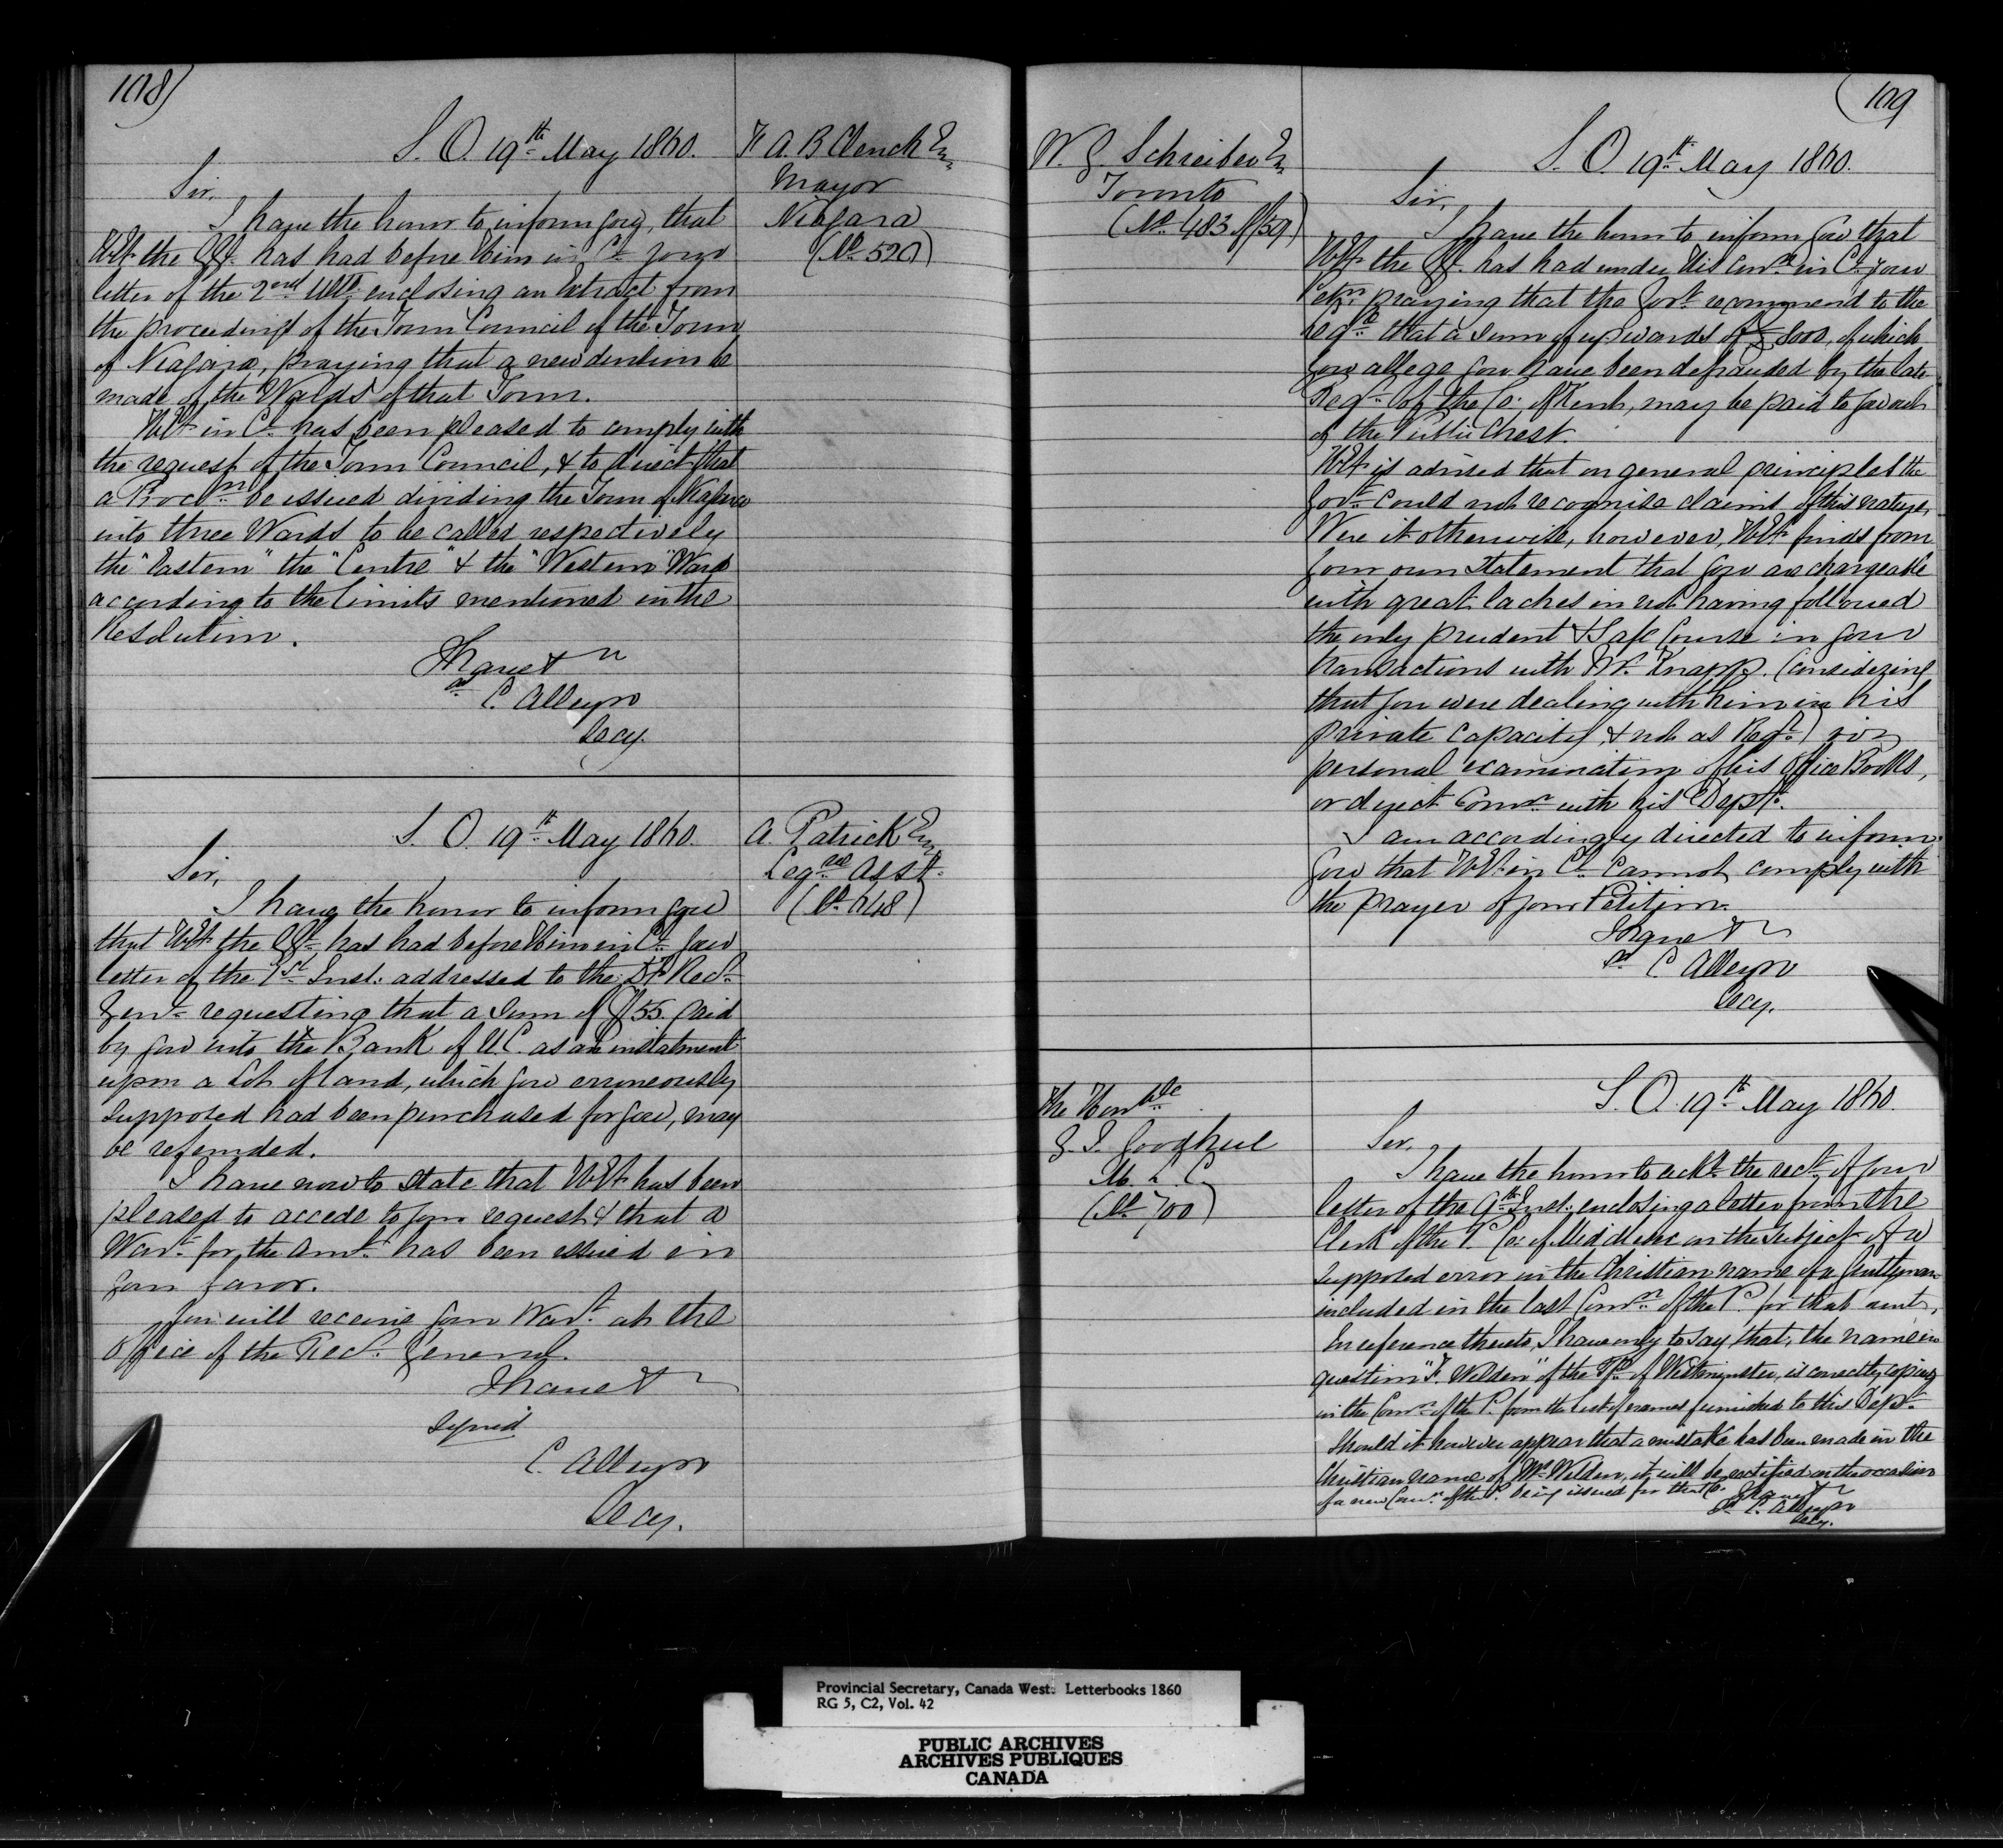 108)
S. O. 19th May 1860.
F. A. B. Clench Esq
Mayor
Niagara
(No 520)
Sir,
I have the honor to inform you, that
H.E. the G.G. has had before Him in Cl. your
letter of the 2nd Ulto. enclosing an Extract from
the proceedings of the Town Council of the Town
of Niagara, praying that a new division be
made of the Wards of that Town.
H.E. in Cl. has been pleased to comply with
the request of the Town Council, & to direct that
a Procln be issued dividing the Town of Niagara
into three Wards to be called respectively
the "Eastern" the "Centre" & the "Western" Ward
according to the limits mentioned in the
Resolution.
I have &c
C. Alleyn
Secy.
S. O. 19th May 1860.
A. Patrick Esq
Legve Asst.
(No 648)
Sir,
I have the honor to inform you
that H.E. the G.G. has had before Him in Cl. your
letter of the 1st Inst: addressed to the Recr
Genl requesting that a sum of £55. paid
by you into the Bank of U.C. as an instalment
upon a Lot of land, which you erroneously
supposed had been purchased for you, may
be refunded.
I have now to state that H.E. has been
pleased to accede to your request & that a
Wart. for the Amt. has been issued in
your favor.
You will receive your Wart. at the
Office of the Recr. General.
I have &c
Signed
C. Alleyn
Secy.
109
W. Schreiber Esq
Toronto
(No 483 of /59)
S. O. 19th May 1860.
Sir,
I have the honor to inform you that
H.E. the G.G. has had under His Conn in Cl. your
Petn. praying that the Govt recommend to the
Legre that a sum of upwards of 8000, of which
you allege you have been defrauded by the late
Regr. of the Co: of Kent, may be paid to you out
of the Public Chest.
H.E. is advised that on general principles the
Govt. could not recognise claims of this nature,
Were it otherwise, however, H.E. finds from
your own Statement that you are chargeable
with great laches in not having followed
the only prudent & Safe Course in your
transactions with Mr. Knapp. (considering
that you were dealing with him in his
private capacity, & not as Regr.) viz
personal examination of his Office Books,
or direct Comn with his Dept.
I am accordingly directed to inform
you that H.E. in Cl. cannot comply with
the prayer of your Petition.
I have &c
C. Alleyn
Secy.
The Honble
G. J. Goodhue
M. L. C.
(No 700)
S. O. 19th May 1860.
Sir,
I have the honor to ackn. the rect. of your
letter of the 9th Inst: enclosing a letter from the
Clerk of the P. Co: of Middlesex on the subject of a
supposed error in the Christian name of a Gentleman
included in the last Comn. of the P. for that
In reference thereto, I have only to say that, the name in
question "F. Weldon" of the Tp. of Westminster, is correctly copied
in the Comn. of the P. from the list of names furnished to this Dept.
Should it however appear that a mistake has been made in the
Christian name of Mr. Weldon, it will be rectified on the occasion
of a new Comn. of the P. being issued for that Co:
I have &c
C. Alleyn
Secy.
Provincial Secretary, Canada West. Letterbooks 1860
RG 5, C2, Vol. 42
PUBLIC ARCHIVES
ARCHIVES PUBLIQUES
CANADA